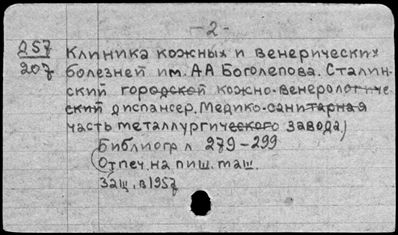 - 2 -
Д57 Клиника кожных и венерических
207 болезней им. А А Боголепова. Сталин-
ский городской кожно-венерологиче-
ский диспансер. Медико-санитарная
часть металлургического завода)
Библиогр л 279-299
(Отпеч. на пиш. маш.
Защ. в 1957